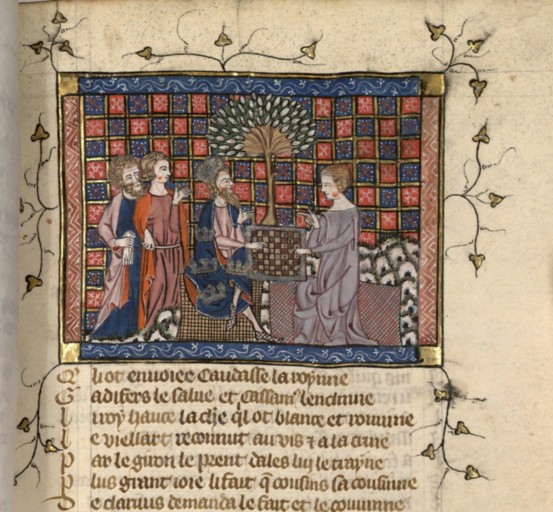 Qu iot enuoiee Caudasse la royne
G adifers le salue et Cassam lencline
L i roy hauce la chie qlot blance et rouuine
L e viellart reconnut au vis ⁊ a la crine
P ar le giron le prent dales lui le trayne
P lus grant ioie li fait q cousins sa cousine
D e clarvus demanda le fait et le couuine